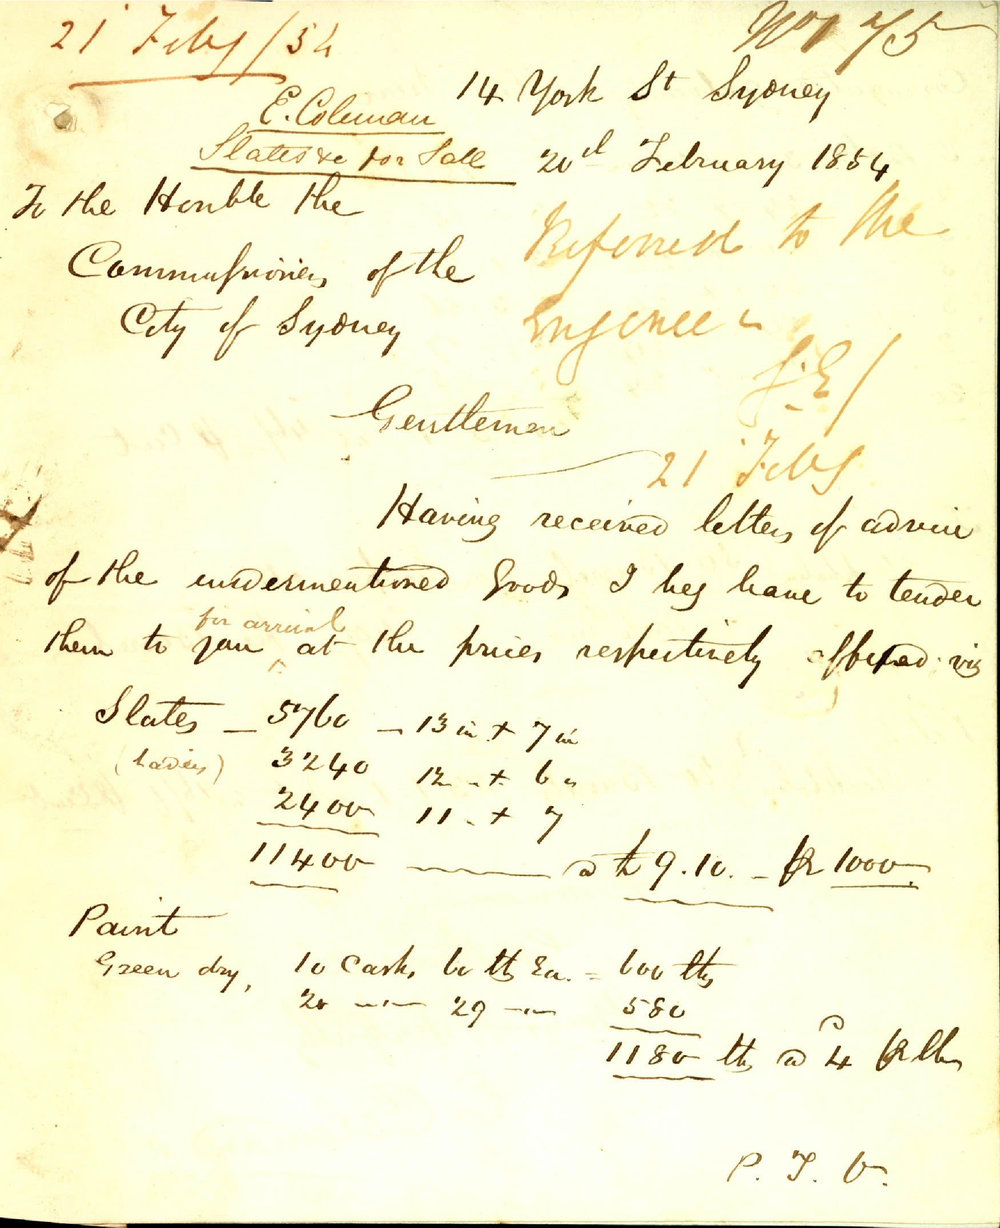 21 Feby /54
No 75
14 York St Sydney
E. Coleman
Slates &c for Sale
20d February 1854
To the Honble the
Commissioners of the
City of Sydney
Referred to the
Engineer
21 Feby
Gentlemen
Having received letters of advice
of the undermentioned Goods I beg leave to tender
for arrival
them to you ^ at the prices respectively affixed viz
Slates — 5760 — 13 in + 7 in
(Ladies) 3240 12 " + 6 "
2400 11 " + 7
11400 ——— @ £9.10. — pr 1000
Paint
Green dry, 10 Casks 60 lbs Ea. = 600 lbs
20 —"— 29 —"— 580
1180 lbs @ 4d pr lb
P. T. O.